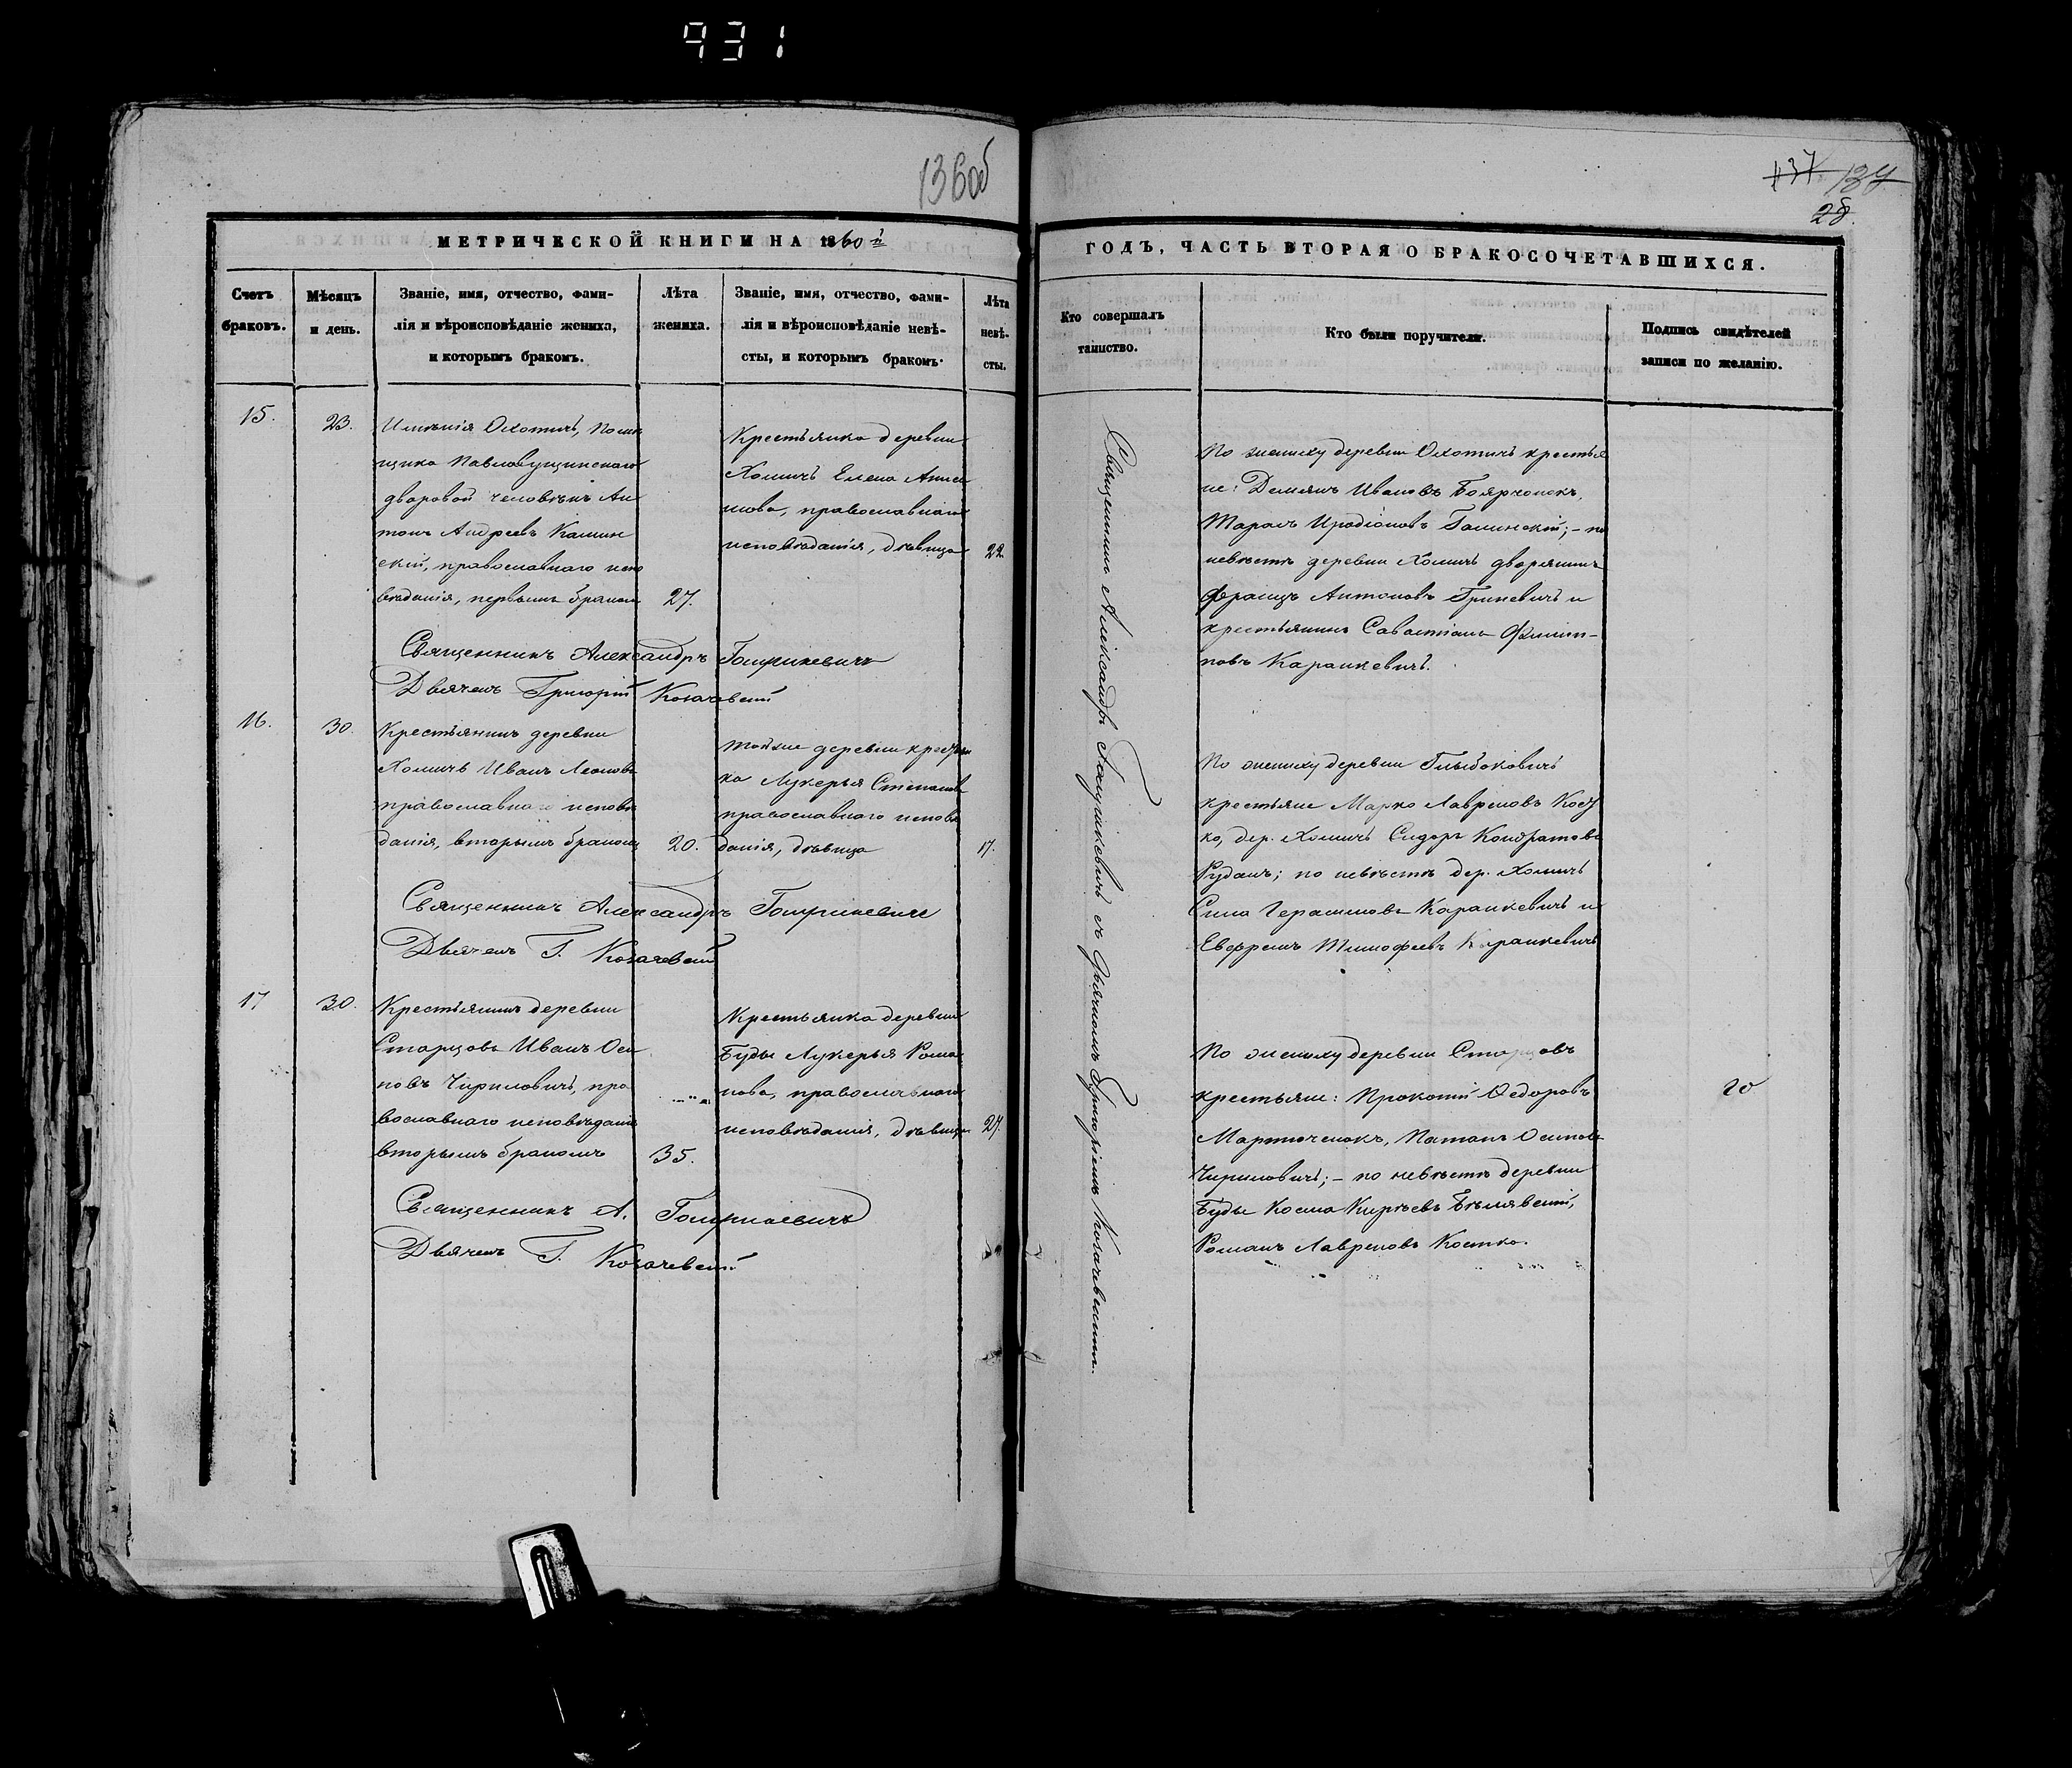 931
136об
137 137
28.
МЕТРИЧЕСКОЙ КНИГИ НА 1860й
ГОДЪ, ЧАСТЬ ВТОРАЯ О БРАКОСОЧЕТАВШИХСЯ.
Счетъ
браковъ.
Мѣсяцъ
и день.
Званіе, имя, отчество, фами-
лія и вѣроисповѣданіе жениха,
и которымъ бракомъ.
Лѣта
жениха.
Званіе, имя, отчество, фами-
лія и вѣроисповѣданіе невѣ-
сты, и которымъ бракомъ.
Лѣта
невѣ-
сты.
Кто совершалъ
таинство.
Кто были поручители.
Подпись свидѣтелей
записи по желанію.
15.
23.
Имѣнія Охотичъ, Помѣ
щика
дворовой человѣкъ Ан
тонъ Андреевъ Камин
скій, православнаго испо
вѣданія, первымъ бракомъ
27.
Крестьянка деревни
Хомичъ Елена
православнаго
исповѣданія, дѣвица
22.
Священникъ Александръ
Дьячекъ Григорій
По жениху деревни Охотичъ крестья
не: Демьянъ Ивановъ Боярчонокъ,
Тарасъ Иродіоновъ Галинскій; – по
невѣстѣ деревни Хомичъ дворянинъ
Францъ Антоновъ Гриневичъ и
крестьянинъ Савастіанъ Филип-
повъ Каранкевичъ.
16.
30.
Крестьянинъ деревни
Хомичъ Иванъ Леоновъ
православнаго исповѣ
данія, вторымъ бракомъ
20.
тойже деревни крестьян
ка Лукерья Степанова
православнаго исповѣ
данія, дѣвица
17.
Священникъ Александръ
Дьячекъ Г.
По жениху деревни Глыбоковичъ
крестьяне Марко Лавреновъ Кост
ко, дер. Хомичъ Сидоръ Кондратовъ
Рудакъ; по невѣстѣ дер. Хомичъ
Сила Герасимовъ Каранкевичъ и
Евфремъ Тимофеевъ Каранкевичъ
17
30.
Крестьянинъ деревни
Старцовъ Иванъ Оси
повъ Чириловичъ, пра
вославнаго исповѣданія
вторымъ бракомъ
35.
Крестьянка деревни
Буды Лукерья Рома
нова, православнаго
исповѣданія, дѣвица
27.
Священникъ А.
Дьячекъ Г.
По жениху деревни Старцовъ
крестьяне: Прокопій Ѳедоровъ
Мартюченокъ, Натанъ Осиповъ
Чириловичъ; – по невѣстѣ деревни
Буды Косма Кирѣевъ Бѣлявскій,
Романъ Лавреновъ Костко.
Священникъ Александръ съ дьячкомъ Григоріемъ